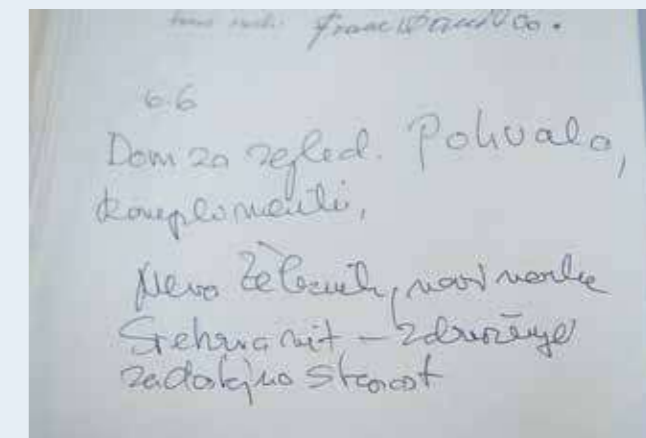 6.6
Dom za zgled. Pohvala,
komplimenti,
Neva Železnik, novinarka
Srebrna nit – združenje
za dostojno starost